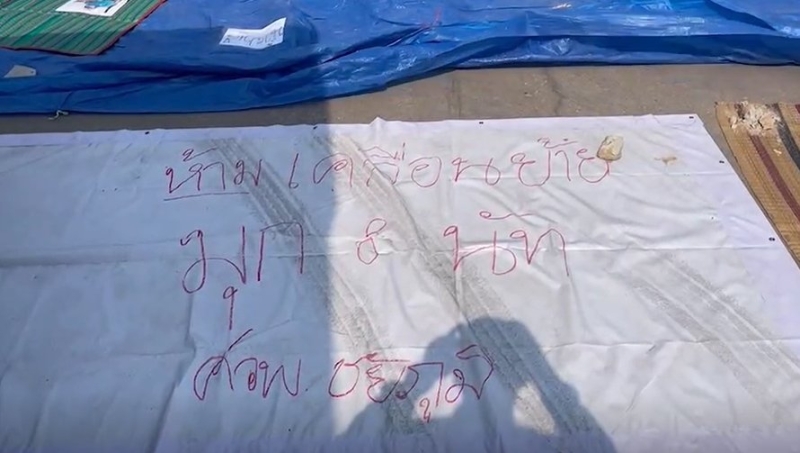 ห้ามเคลื่อนย้าย
มุก & นัท
ศวพ. ชัยภูมิ